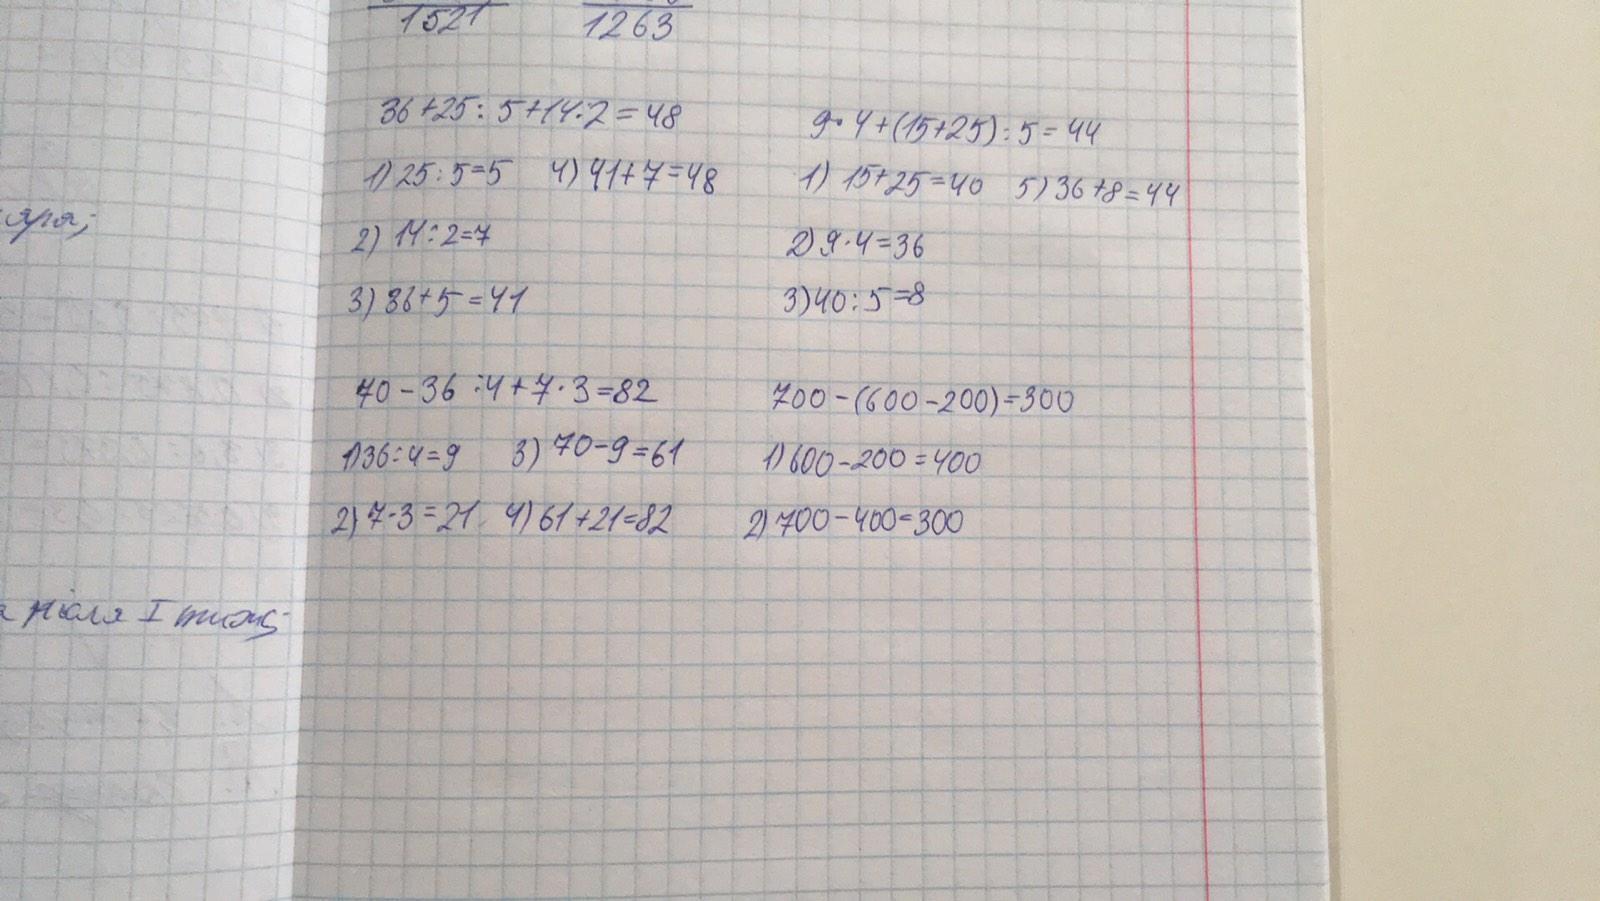 1521 1263
36+25:5+14:2=48
1) 25:5=5 4) 41+7=48
2) 14:2=7
3) 36+5=41
9·4+(15+25):5=44
1) 15+25=40 5) 36+8=44
2) 9·4=36
3) 40:5=8
70-36:4+7·3=82
1) 36:4=9 3) 70-9=61
2) 7·3=21 4) 61+21=82
700-(600-200)=300
1) 600-200=400
2) 700-400=300
після I тиж